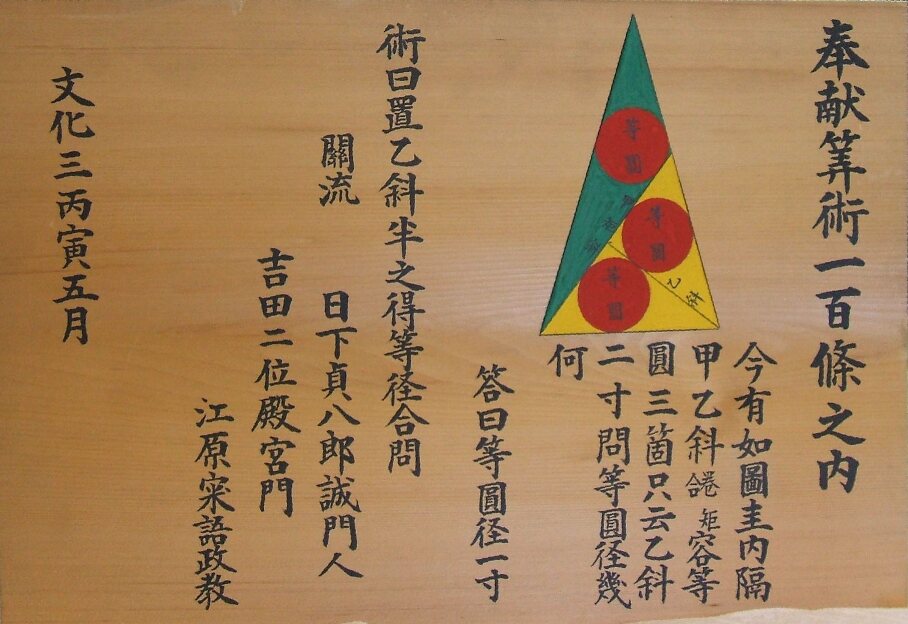 奉献筭術一百條之内
今有如圖圭内隔
甲乙斜 矩容等
圓三箇只云乙斜
二寸問等圓径幾
何
等圓
等圓
等圓
甲斜
乙斜
答曰等圓径一寸
術曰置乙斜半之得等径合問
關流
日下貞八郎誠門人
吉田二位殿宮門
江原寀語政教
文化三丙寅五月